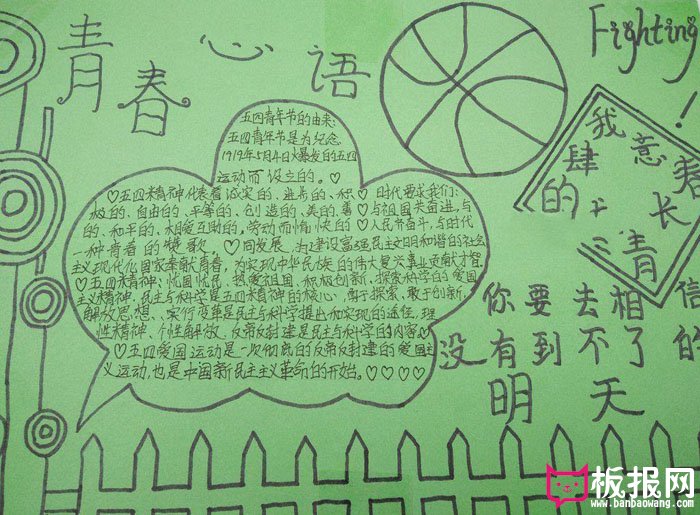 青春心语
Fighting!
五四青年节的由来:
五四青年节是为纪念
1919年5月4日爆发的五四
运动而设立的。♡
♡五四精神代表着诚实的、进步的、积
极的、自由的、平等的、创造的、美的、善
的、和平的、相爱互助的、劳动而愉快的
一种青春的赞歌。
♡时代要求我们:
与祖国共奋进,与
人民共奋斗,与时代
♡同发展,为建设富强民主文明和谐的社会
主义现代化国家奉献青春,为实现中华民族的伟大复兴事业贡献才智
♡五四精神:忧国忧民、热爱祖国、积极创新、探索科学的爱国
主义精神。民主与科学是五四精神的核心,勇于探索、敢于创新、
解放思想、实行变革是民主与科学提出和实现的途径,理
性精神、个性解放、反帝反封建是民主与科学的内容♡
♡五四爱国运动是一次彻底的反帝反封建的爱国主
义运动,也是中国新民主主义革命的开始。♡♡♡♡
我意
肆
的
长
青
你要去相信
没有到不了的
明天
板报网
www.banbaowang.com